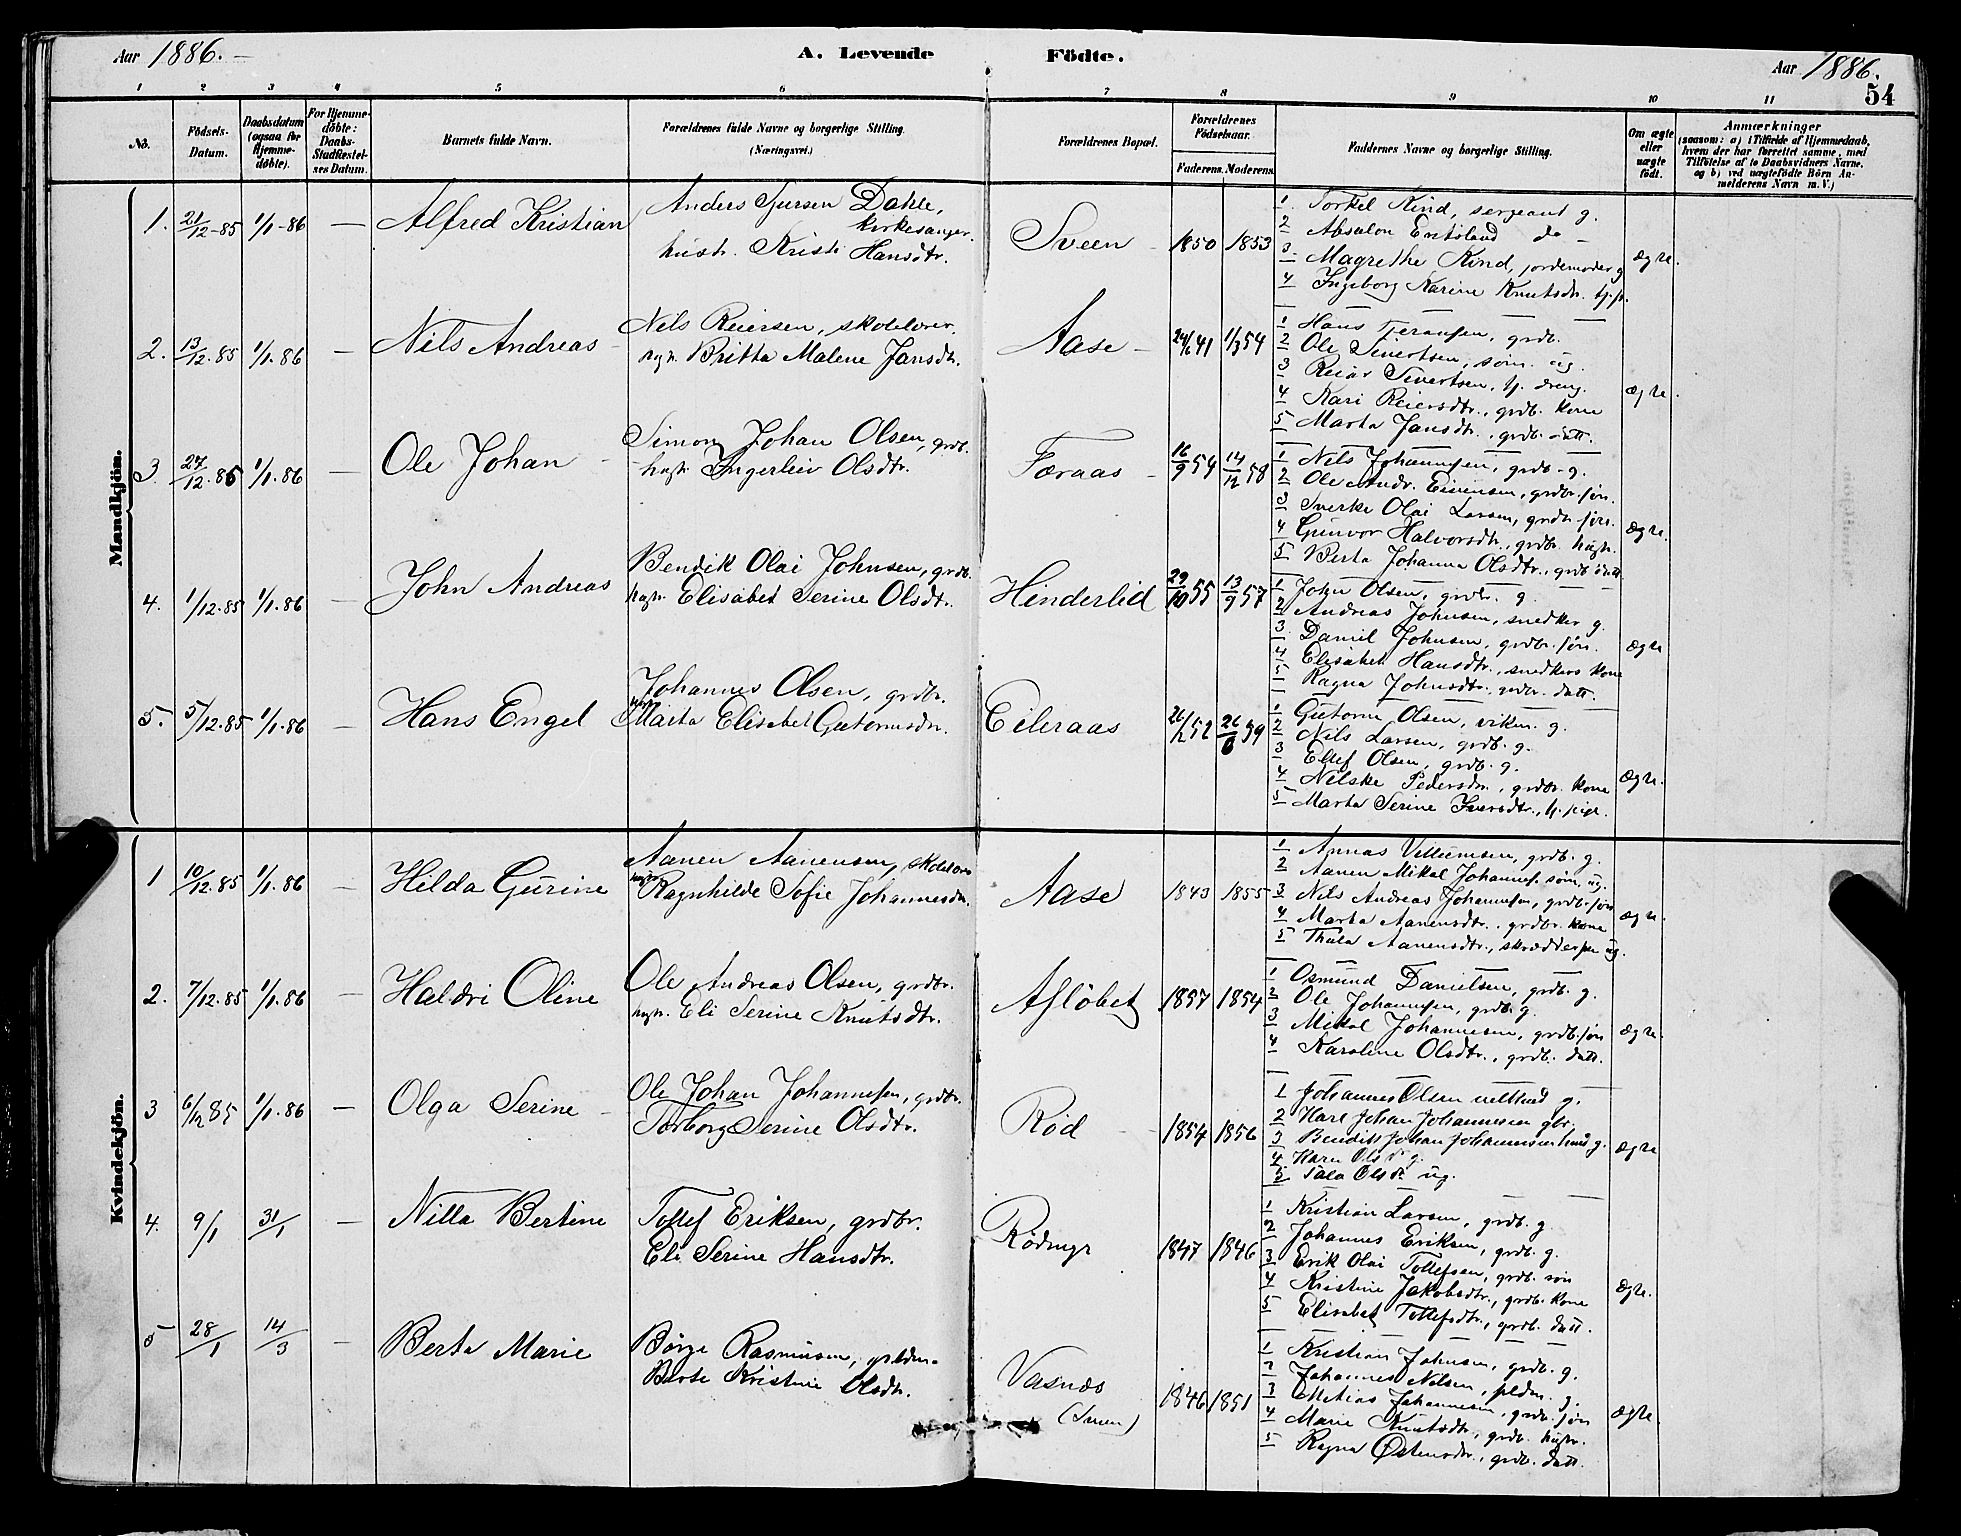 Aar 1886. —
A. Levende Födte.
Aar 1886.
54
1 2 3 4 5 6 7 8 9 10 11
No.
Födsels-
Datum.
Daabsdatum
(ogsaa for
Hjemme-
døbte).
For Hjemme-
døbte:
Daabs-
Stadfæstel-
ses Datum.
Barnets fulde Navn.
Forældrenes fulde Navne og borgerlige Stilling.
(Næringsvei.)
Forældrenes Bopæl.
Forældrenes
Födselsaar.
Faderens. Moderens.
Faddernes Navne og borgerlige Stilling.
Om ægte
eller
uægte
födt.
Anmærkninger
(saasom: a) i Tilfælde af Hjemmedaab,
hvem der har forrettet samme, med
Tilföielse af to Daabsvidners Navne,
og b) ved uægtefödte Börn An-
melderens Navn m. V.)
Mandkjön.
1. 21/12-85 1/1-86 — Alfred Kristian
Anders Dahle,
kirkesanger.
hustr. Kristi Hansdtr.
Sveen 1850 1853
1. Torkel Kind, sergeant g.
2 Absalon do -
3. Magrethe Kind, jordemoder g
4 Ingeborg Karine Knutsdtr.
ægte.
2. 13/12.85 1/1.86 — Nils Andreas
Nels Reiersen, skolelærer.
Britta Malene Jansdtr.
Aase 24/6 41 1/3 54
1 Hans grdb.
2 Ole Sivertsen, søn. ug.
3 Reiar Sivertsen, tj. dreng.
4 Kari Reiersdtr., grdb. kone
5 Marta Jansdtr., grdb. datt.
ægte.
3. 27/12.85 1/1.86 — Ole Johan
Simon Johan Olsen, grdb.
hustr. Ingerleiv Olsdtr.
Færaas 16/9 54 14/12 58
1 Nils Johannesen, grdb. g.
2 Ole Andr. Eivensen, grdbr. søn.
3 Sverke Olai Larsen, grdb. søn.
4 Gunvor Halvorsdtr., grdbr. hustr.
5 Berta Johanna Olsdtr., grdb. datt
ægte.
4. 1/12.85 1/1.86 — John Andreas
Bendik Olai Johnsen, grdb.
hustr. Elisabet Serine Olsdtr.
Hinderlid 29/10 55 13/9 57
1 John Olsen, grdbr. g.
2 Andreas Johnsen, snedker g.
3 Daniel Johnsen, grdbr. søn.
4 Elisabet Hansdtr., snedkers kone
5 Ragna Johnsdtr., datt.
ægte
5. 5/12.85 1/1.86 — Hans Engel
Johannes Olsen, grdbr.
hustr. Marta Elisabet Gutormsdtr.
Eileraas 26/12 52 26/6 59
1 Gutorm Olsen, g.
2 Nils Larsen, grdb. g.
3 Ellef Olsen, grdb. g.
4 Nilske Pedersdtr., grdbr. kone
5 Marta Serine Iversdtr., tj. pige.
ægte.
Kvindekjön.
1 10/12.85 1/1.86 — Hilda Gurine
Aanen Aanensen, skolelærer
hustr. Ragnhilde Sofie Johannesdtr.
Aase 1843 1855
1 Annas Vellumsen, grdb. g.
2 Aanen Mikal Johannes. søn, ug.
3 Nils Andreas Johannesen, grdb. søn
4 Marta Aanensdtr., grdbr. kone
5 Thala Aanensdtr., ug.
ægte.
2. 7/12.85 1/1.86 — Haldri Oline
Ole Andreas Olsen, grdbr.
hustr. Eli Serine Knutsdtr.
Afløbet 1857 1854
1 Osmund Danielsen, grdb. g.
2 Ole Johannesen, grdb. g.
3 Mikal Johannesen, grdb. søn
4 Karoline Olsdtr., grdb. datt.
ægte.
3 6/12 85 1/1.86 — Olga Serine
Ole Johan Johannesen, grdbr.
Torborg Serine Olsdtr.
Rød 1854 1856
1 Johannes Olsen g.
2 Karl Johan Johannesen gbr.
3 Bendik Johan Johannesen g.
4 Karn Olsd. g.
5 Tala Olsdr. ug.
ægte
4. 9/1 31/1 — Nilla Bertine
Tollef Eriksen, grdbr.
Eli Serine Hansdtr.
Rødmyr 1847 1846
1 Kristian Larsen, grdb. g.
2 Johannes Eriksen, grdb. g.
3 Erik Olai Tollefsen, grdb. søn
4 Kristine Jakobsdtr., grdb. kone
5 Elisabet Tollefsdtr., grdb. datt.
ægte.
5 28/1 14/3 — Berta Marie
Børge Rasmusen,
Berte Kristine Olsdtr.
Vasnæs 1846 1851
1 Kristian Johnsen, grdb. g.
2 Johannes Nilsen, g.
3 Matias Johannesen, grdb. søn
4 Marie Knutsdtr., grdb. hustr.
5 Ragna Østensdtr., grdb. datt.
ægte.